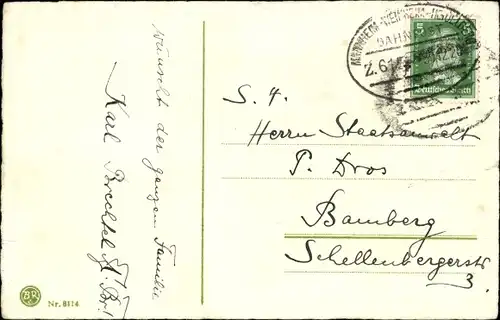 wünscht der ganzen Familie
Karl Brechtel
MANNHEIM-WEINHEIM-HEIDELBERG
BAHN
Z.61
5
5
Deutsches Reich
S. H.
Herrn Staatsanwalt
P. Dros
Bamberg
Schellenbergerstr
3.
BR
Nr. 8114